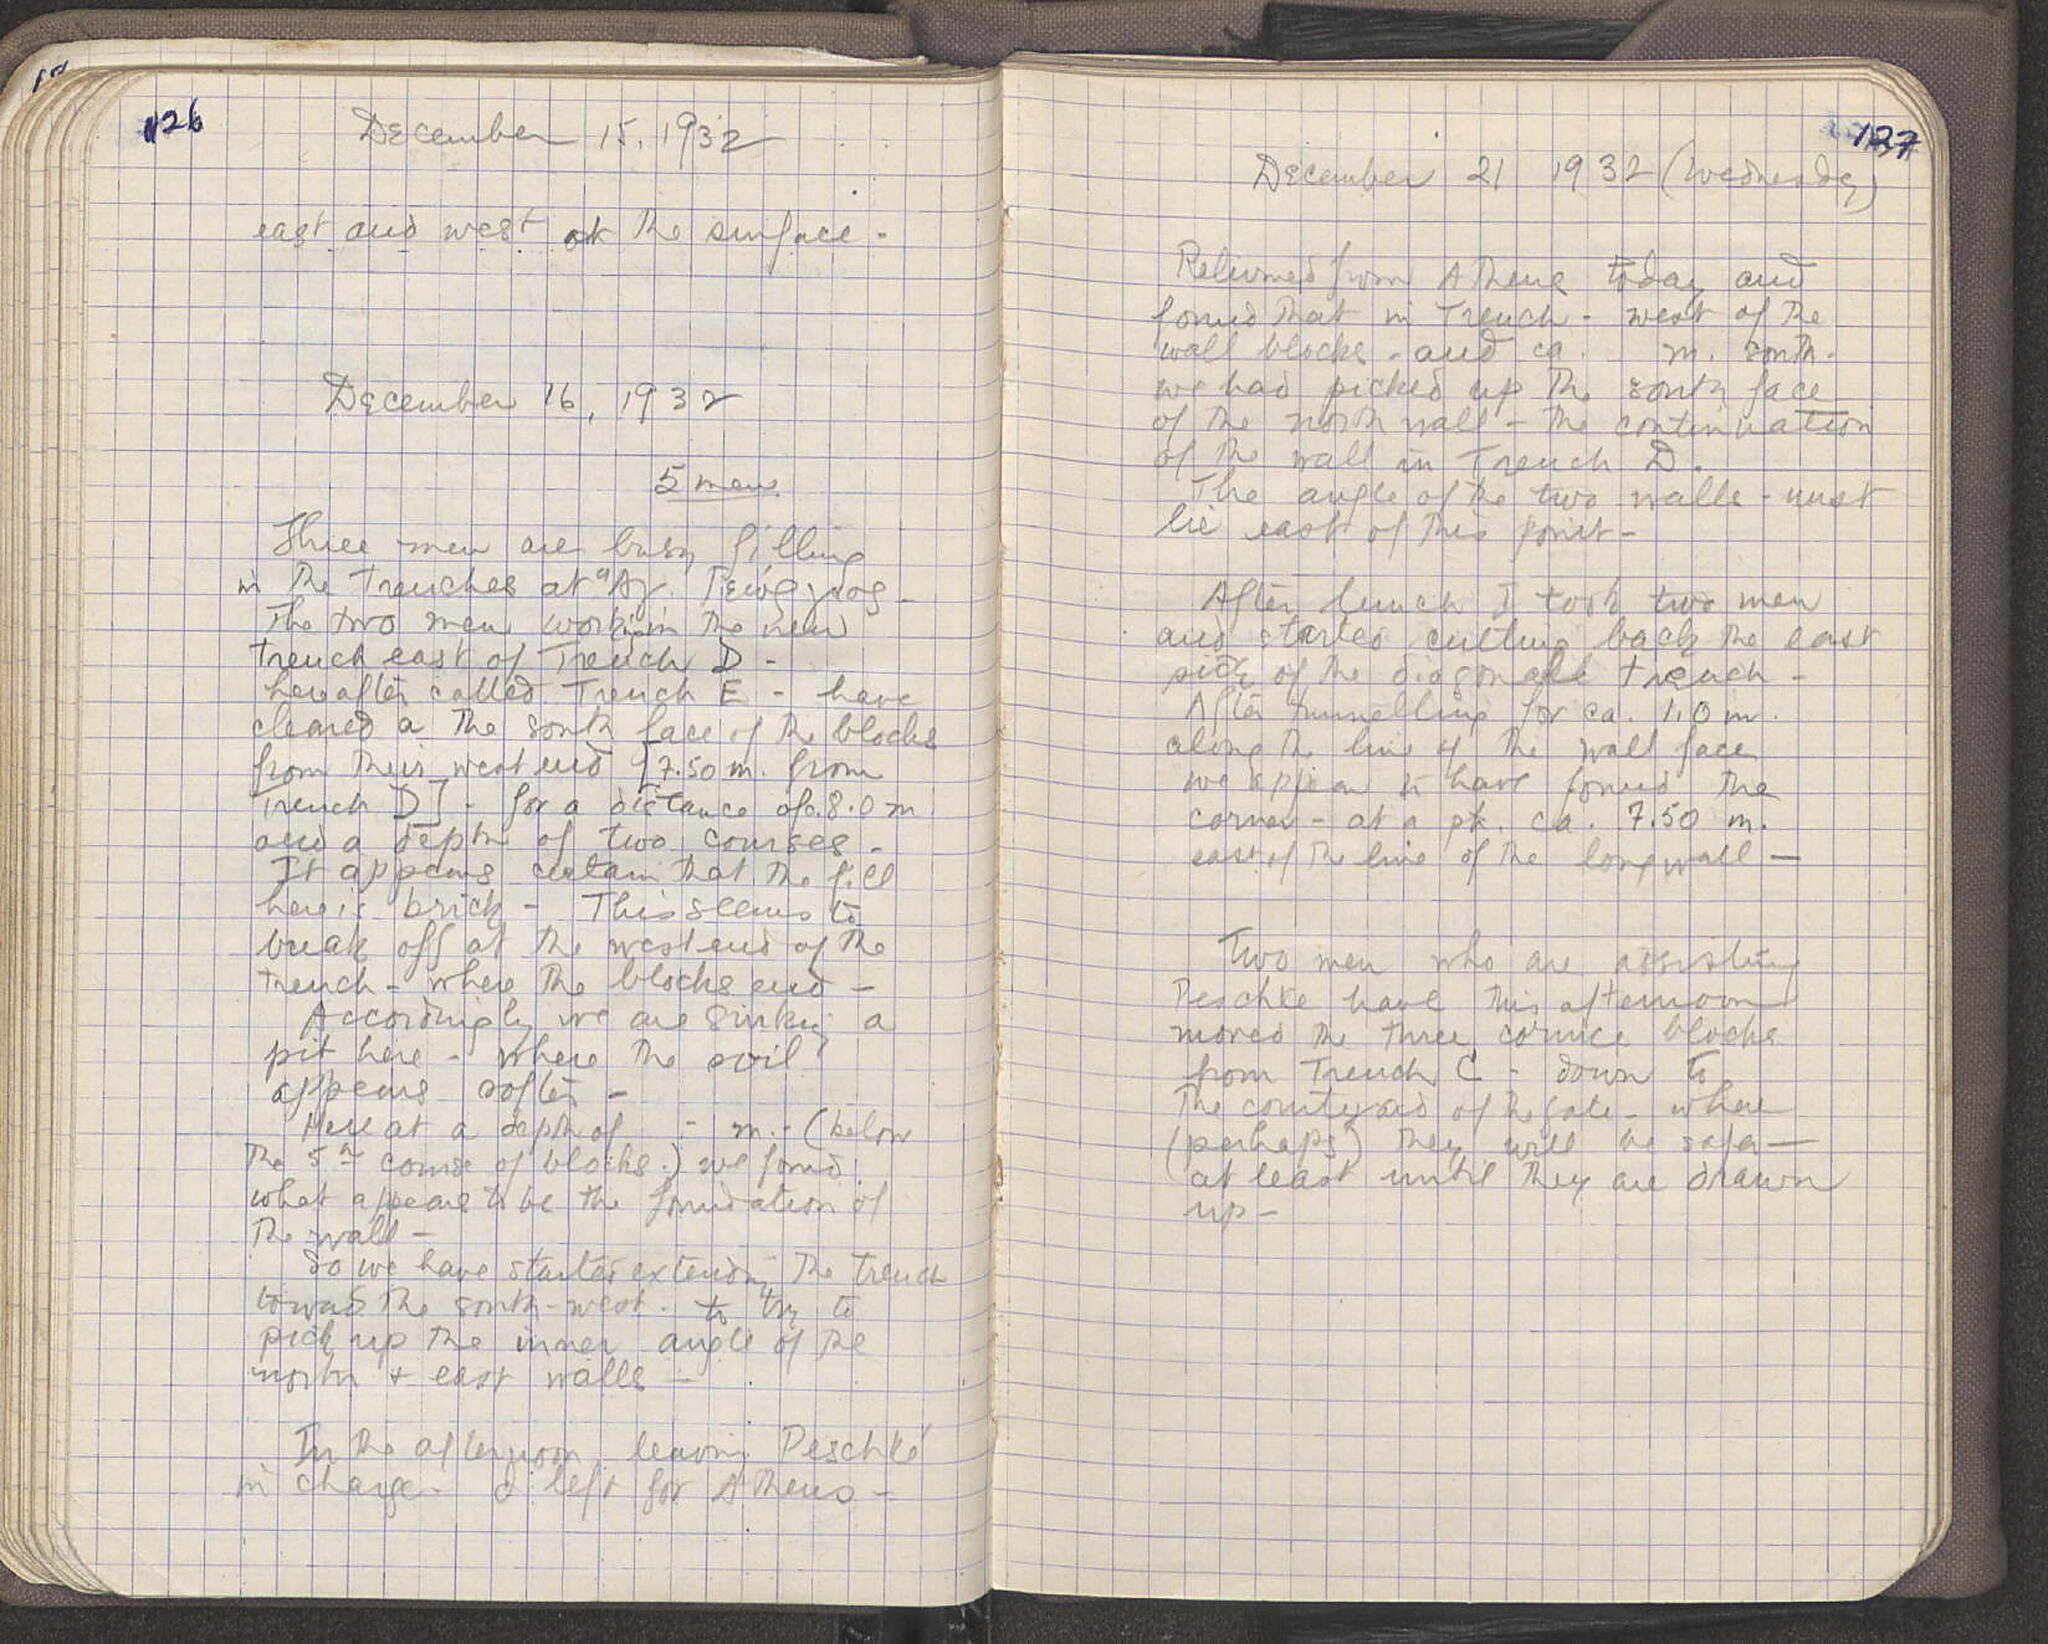 126
December 15, 1932
east and west at the surface -
December 16, 1932
5 men
Three men are busy filling
in the trenches at "Αγ. Γεώργιος -
The two men working in the new
trench east of Trench D -
hereafter called Trench E - have
cleared a the south face of the blocks
from their west end [7.50 m. from
Trench D] - for a distance of c. 8.0 m
and a depth of two courses -
It appears certain that the fill
here is brick - This seems to
break off at the west end of the
trench - where the blocks end -
Accordingly we are sinking a
pit here - where the soil
appears softer -
Here at a depth of - m. - (below
the 5th course of blocks.) we found
what appears to be the foundation of
the wall -
So we have started extending the trench
toward the south-west - to try to
pick up the inner angle of the
north + east walls -
In the afternoon leaving Peschke
in charge - I left for Athens -
127
December 21 1932 (Wednesday)
Returned from Athens today and
found that in Trench - west of the
wall blocks - and ca. m. south -
we had picked up the south face
of the north wall - the continuation
of the wall in Trench D.
The angle of the two walls - must
lie east of this point -
After lunch I took two men
and started cutting back the east
side of the diagonal trench -
After tunnelling for ca. 1.0 m.
along the line of the wall face
we appear to have found the
corner - at a pt. ca. 7.50 m.
east of the line of the long wall -
Two men who are assisting
Peschke have this afternoon
moved the three cornice blocks
from Trench C - down to
the courtyard of the gate - where
(perhaps) they will be safer -
at least until they are drawn
up -